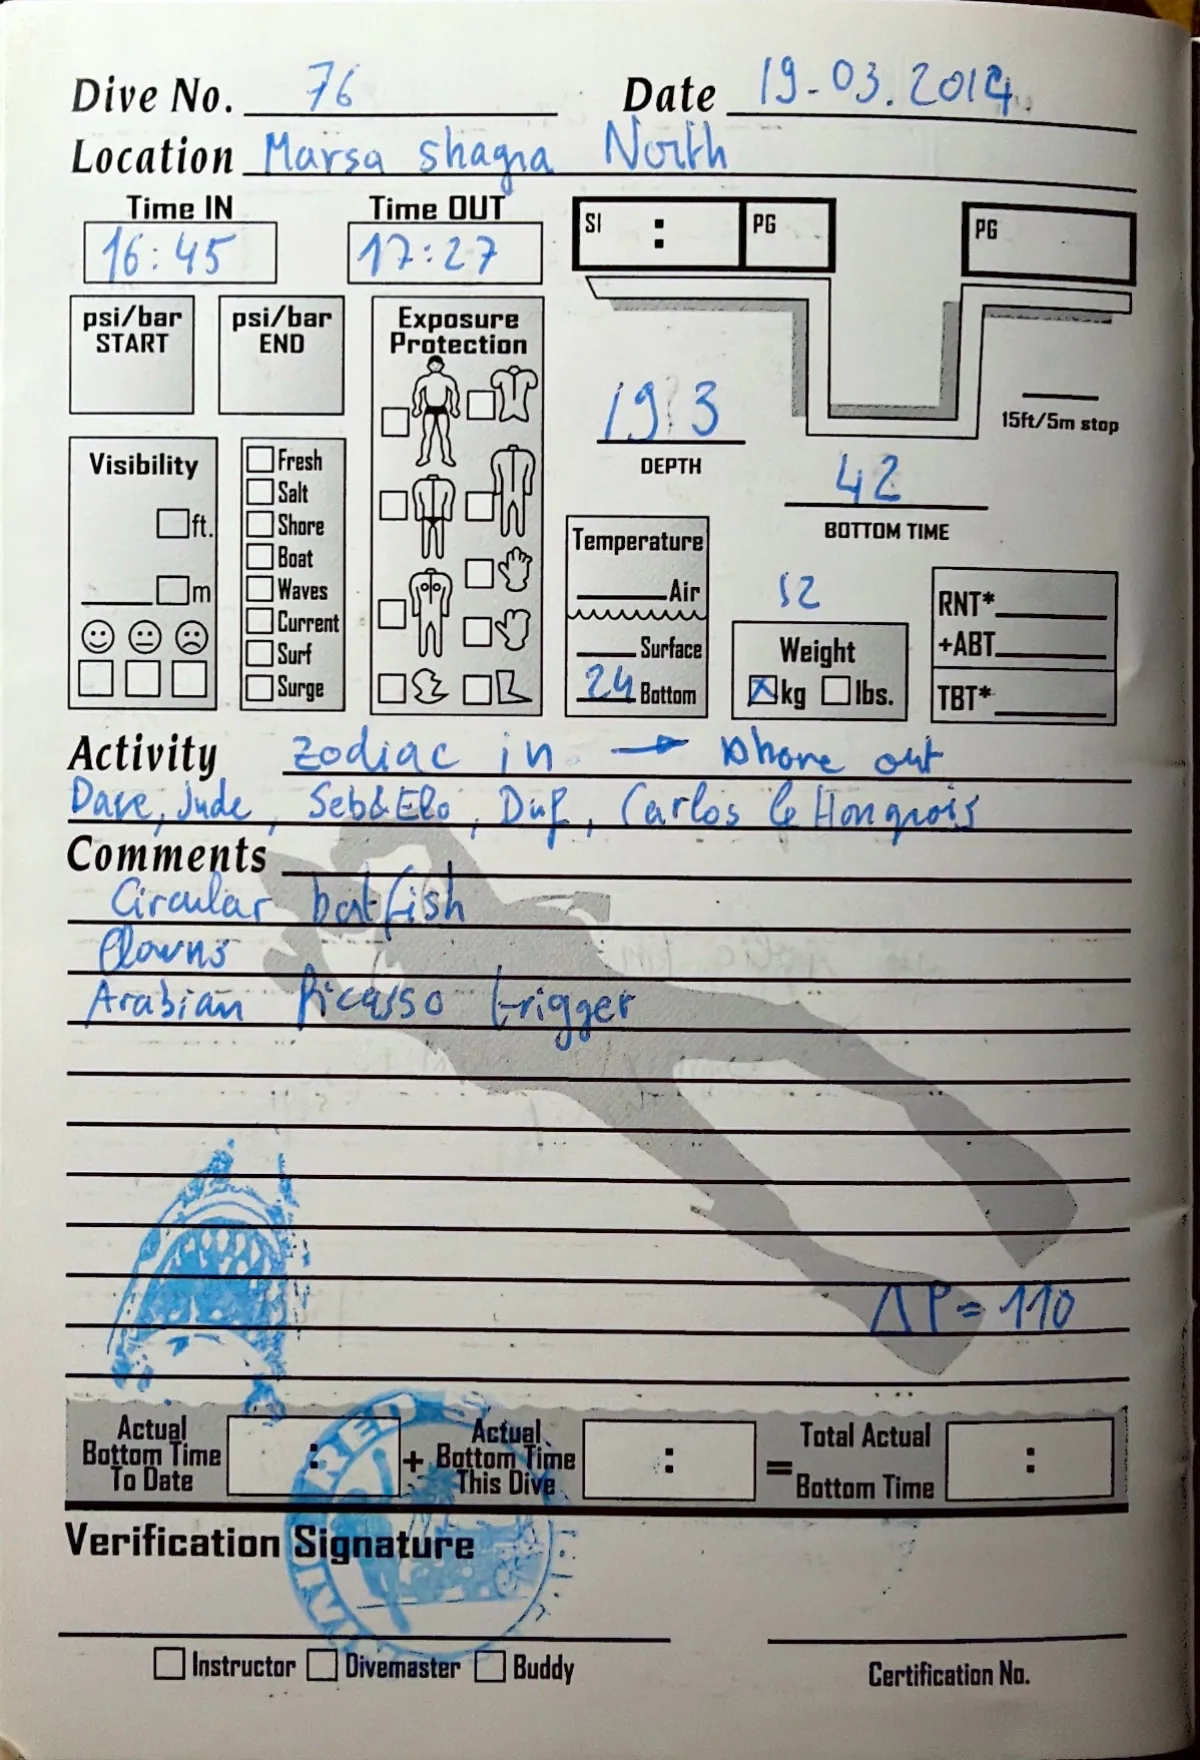 Dive No. 76 Date 19-03.2014
Location Marsa shagra North
Time IN Time OUT
16:45 17:27
SI : PG PG
psi/bar START psi/bar END Exposure Protection
19 3 DEPTH
15ft/5m stop
42
BOTTOM TIME
Visibility
ft.
m
Fresh
Salt
Shore
Boat
Waves
Current
Surf
Surge
Temperature
Air
Surface
24 Bottom
12
Weight
x kg lbs.
RNT*
+ABT
TBT*
Activity zodiac in → shore out
Dave, Jude, Seb&Elo, Duf, Carlos le Hongrois
Comments
Circular batfish
Clowns
Arabian Picasso trigger
ΔP = 110
Actual Bottom Time To Date : + Actual Bottom Time This Dive : = Total Actual Bottom Time :
RED
Verification Signature
Instructor Divemaster Buddy
Certification No.